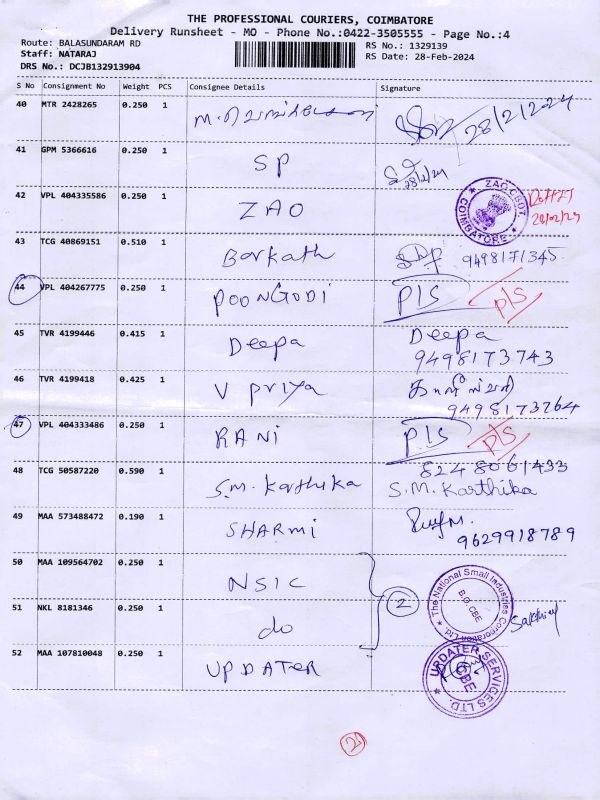 THE PROFESSIONAL COURIERS, COIMBATORE
Delivery Runsheet - MO - Phone No.:0422-3505555 - Page No.:4
Route: BALASUNDARAM RD
RS No.: 1329139
Staff: NATARAJ
RS Date: 28-Feb-2024
DRS No.: DCJB132913904
S No Consignment No Weight PCS Consignee Details Signature
40 MTR 2428265 0.250 1 28/2/2024
41 GPM 5366616 0.250 1 SP 28/2/24
42 VPL 404335586 0.250 1 ZAO
ZAO CBDT, COIMBATORE
28/02/24
43 TCG 40869151 0.510 1 Barkath 9498171345
44 VPL 404267775 0.250 1 POONGODI P/S P/S
45 TVR 4199446 0.415 1 Deepa Deepa
9498173743
46 TVR 4199418 0.425 1 V Priya
9498173764
47 VPL 404333486 0.250 1 RANI P/S P/S
8248061433
48 TCG 50587220 0.590 1 S.M. Karthika S.M. Karthika
49 MAA 573488472 0.190 1 SHARMI
9629918789
50 MAA 109564702 0.250 1 NSIC
2
The National Small Industries Corporation Ltd.
B.O CBE
51 NKL 8181346 0.250 1 do
52 MAA 107810048 0.250 1 UPDATER
UPDATER SERVICES LTD.
CBE